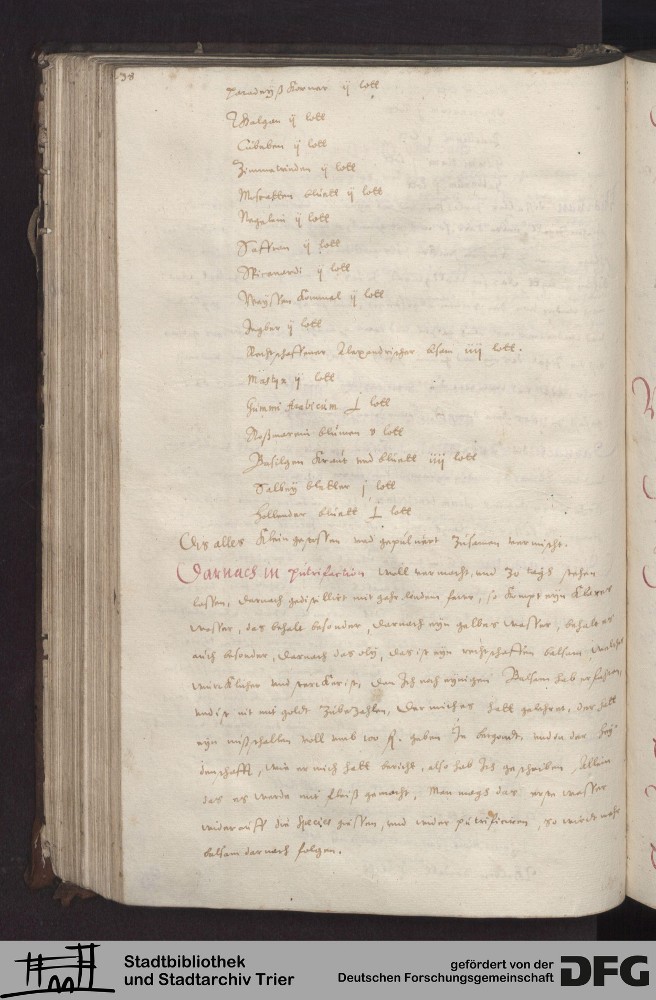 38
paradeyß korner ij lott
Galgan ij lott
Cubeben ij lott
Zimmetrinden ij lott
Moscatten bluett ij lott
Negelein ij lott
Saffran ij lott
Spicanardi ij lott
Weyssen kommel ij lott
Ingber ij lott
Rechtschaffener Alexandrischer bisem iiij lott.
Mastix ij lott
Gummi Arabicum lott
Roßmarein blumen lott
Basilgen kraut und bluett iiij lott
Salbey bletter j lott
Hollender bluett lott
Dis alles klein gestossen und gepulvert zusamen vermischt.
Darnach in putrifaction woll vermacht, und 30 tags stehen
lossen, darnach gedistilliert mit gahr lindem feur, so kompt eyn klares
wasser, das behalt besonder, darnach eyn gelbes wasser, behalt es
auch besonder, darnach das oly, das ist eyn rechtschaffen balsam, welcher
wurcklicher und stercker ist, dan Ich noch eynigen Balsam hab erfahren,
und ist nit mit goldt zubezahlen, Der mich es hatt gelehrnt, der hatt
eyn woll umb 100 fl. geben In burgondt, und in der hey-
denschafft, wie er mich hatt bericht, also hab Ich geschrieben, Allein
das es werde mit fleiß gemacht, Man mag das erste wasser
wider auff die species giessen, und wider putrificieren, so wirdt mehr
balsam darnach folgen.
Stadtbibliothek
und Stadtarchiv Trier
gefördert von der
Deutschen Forschungsgemeinschaft
DFG